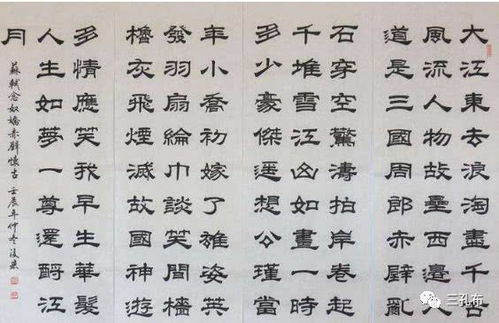 大江東去浪淘盡千古
風流人物故壘西邊人
道是三國周郎赤壁亂
石穿空驚濤拍岸卷起
千堆雪江山如畫一時
多少豪傑遥想公瑾當
年小喬初嫁了雄姿英
發羽扇綸巾談笑間檣
櫓灰飛煙滅故國神遊
多情應笑我早生華髮
人生如夢一尊還酹江
月
蘇軾念奴嬌赤壁懷古 壬辰年仲冬
三孔布